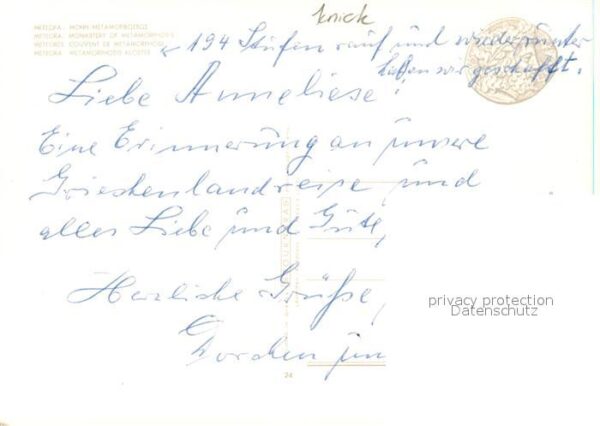 knick
ΜΕΤΕΩΡΑ: ΜΟΝΗ ΜΕΤΑΜΟΡΦΩΣΕΩΣ
METEORA: MONASTERY OF METAMORPHOSIS
METEORES: COUVENT DE METAMORPHOSE
METEORA: METAMORPHOSIS KLOSTER
194 Stufen rauf und wieder runter
haben wir geschafft.
Liebe Anneliese!
Eine Erinnerung an unsere
Griechenlandreise und
alles Liebe und Gute,
Herzliche Grüße,
Dorchen
24
privacy protection
Datenschutz